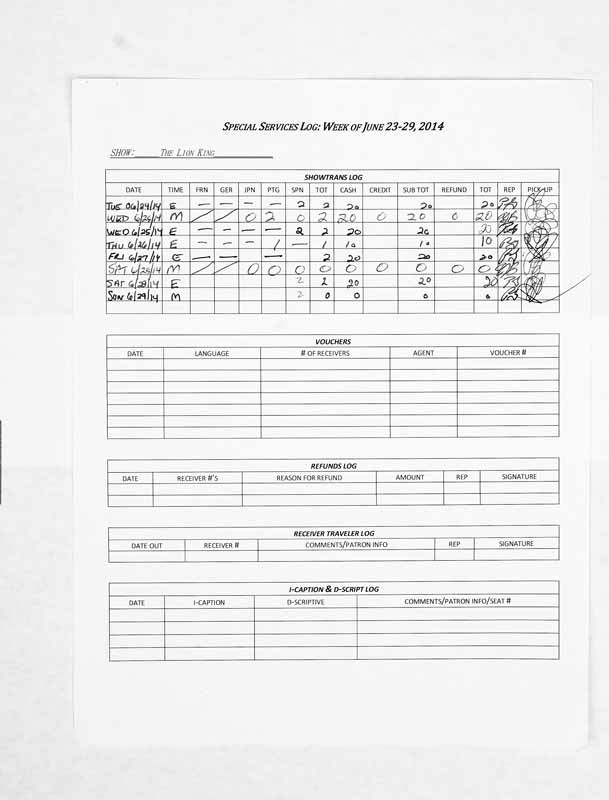 SPECIAL SERVICES LOG: WEEK OF JUNE 23-29, 2014
SHOW: THE LION KING
SHOWTRANS LOG
DATE TIME FRN GER JPN PTG SPN TOT CASH CREDIT SUB TOT REFUND TOT REP PICK-UP
TUE 06/24/14 E — — — — 2 2 20 20 20
WED 6/25/14 M / / 0 2 0 2 20 0 20 0 20
WED 6/25/14 E — — — — 2 2 20 20 20
THU 6/26/14 E — — — 1 — 1 10 10 10
FRI 6/27/14 E — — — 2 20 20 20
SAT 6/28/14 M / / 0 0 0 0 0 0 0 0 0
SAT 6/28/14 E 2 2 20 20 20
SUN 6/29/14 M 2 0 0 0 0
VOUCHERS
DATE LANGUAGE # OF RECEIVERS AGENT VOUCHER #
REFUNDS LOG
DATE RECEIVER #'S REASON FOR REFUND AMOUNT REP SIGNATURE
RECEIVER TRAVELER LOG
DATE OUT RECEIVER # COMMENTS/PATRON INFO REP SIGNATURE
I-CAPTION & D-SCRIPT LOG
DATE I-CAPTION D-SCRIPTIVE COMMENTS/PATRON INFO/SEAT #